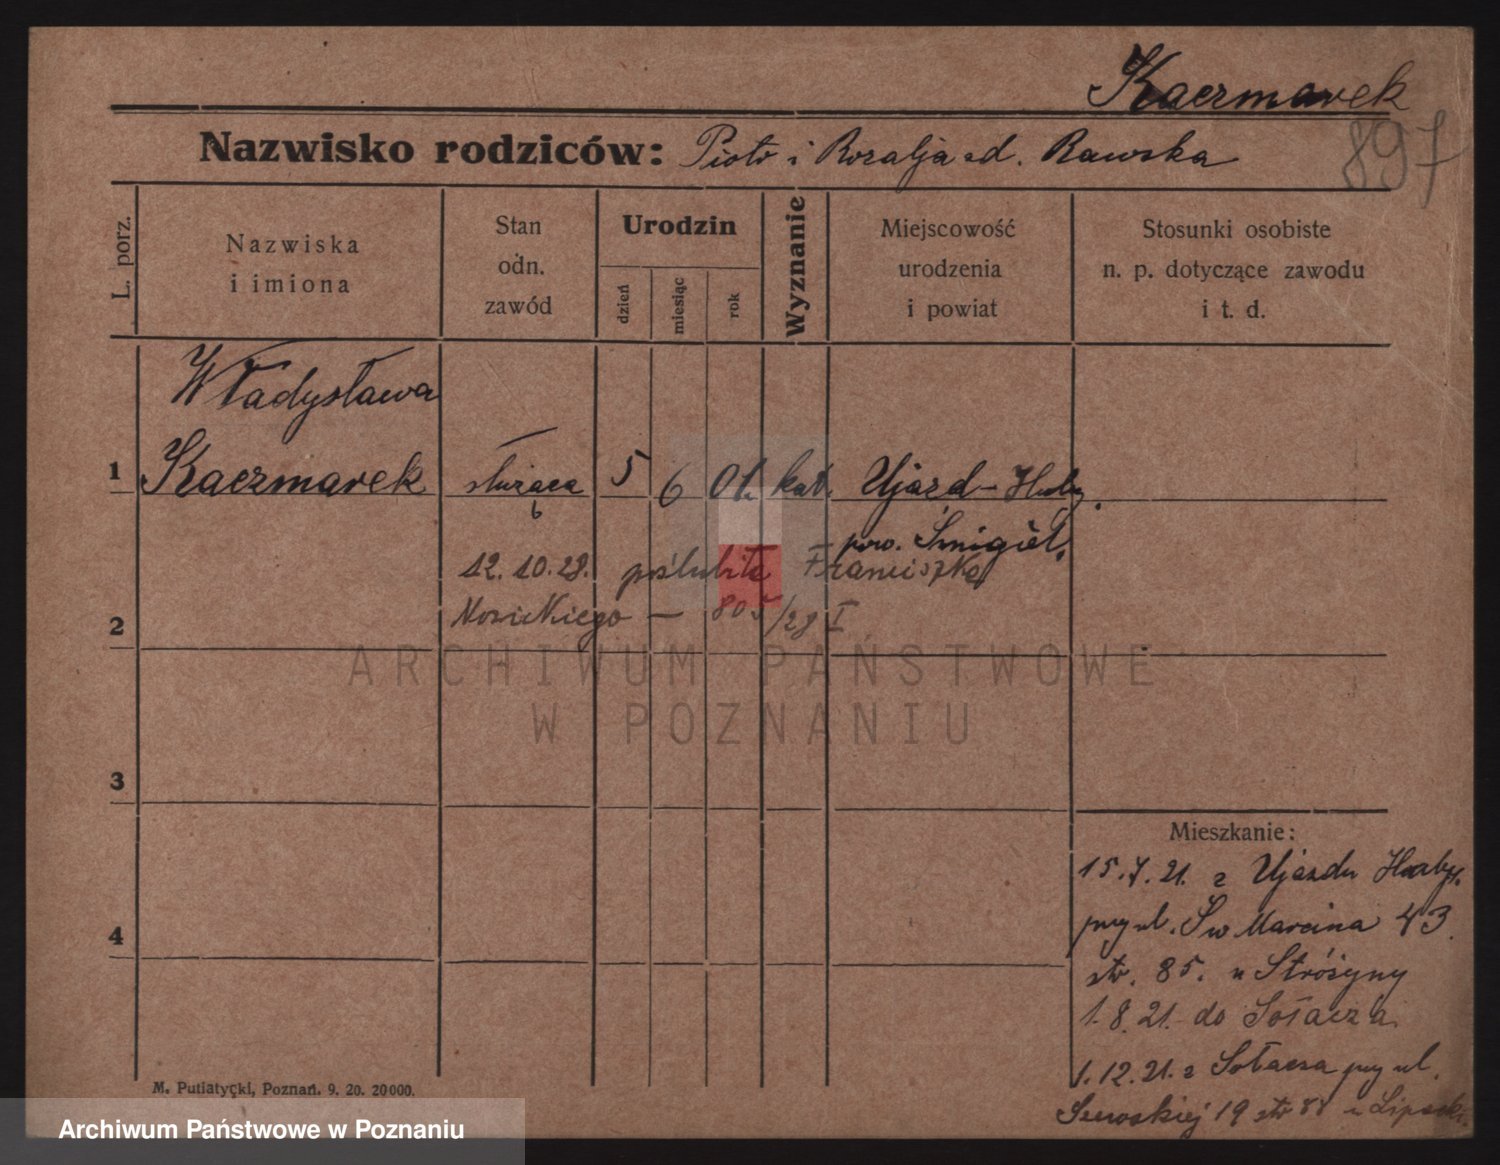 Kaczmarek
897
Nazwisko rodziców: Piotr i Rozalja zd. Rawska
L. porz.
Nazwiska
i imiona
Stan
odn.
zawód
Urodzin
dzień
miesiąc
rok
Wyznanie
Miejscowość
urodzenia
i powiat
Stosunki osobiste
n. p. dotyczące zawodu
i t. d.
Władysława
1 Kaczmarek służąca 5 6 01. kat. Ujazd-Huby.
pow. Śmigiel.
12.10.28. poślubiła Franciszka
Nosickiego — 805/28 I
2
ARCHIWUM PAŃSTWOWE
W POZNANIU
3
Mieszkanie:
15.7.21. z Ujazdu Huby.
przy ul. Św Marcina 43.
str. 85. u Stróżyny
4
1.8.21. do Sołacza
1.12.21. z Sołacza przy ul.
19 str
M. Putiatycki, Poznań. 9. 20. 20000.
Archiwum Państwowe w Poznaniu